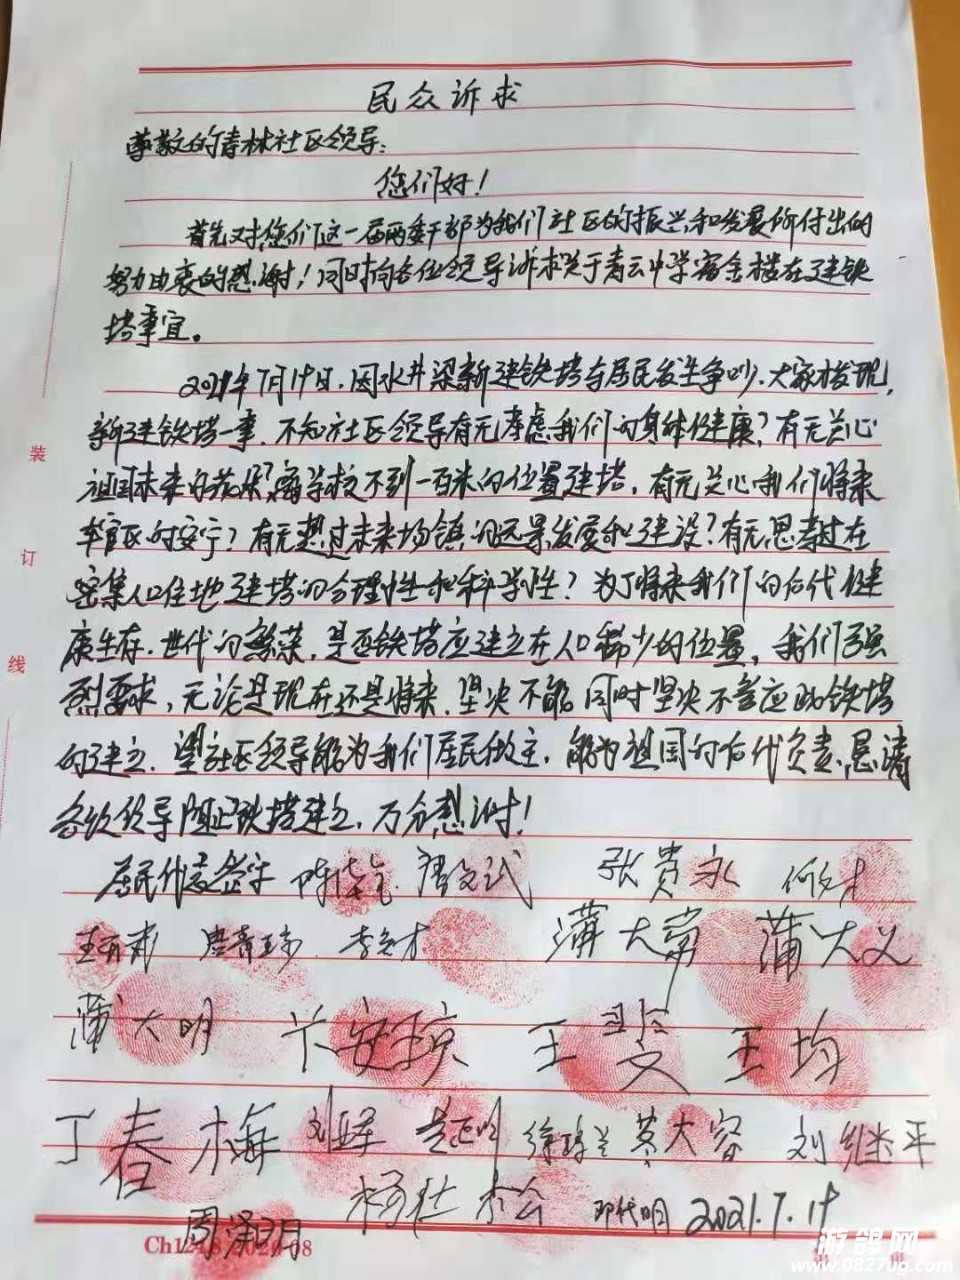 民众诉求
尊敬的青林社区领导：
您们好！
首先对您们这一届两委干部为我们社区的振兴和发展所付出的
努力由衷的感谢！同时向各位领导诉求关于青云中学宿舍楼在建铁
塔事宜。
2021年7月19日，因水井梁新建铁塔与居民发生争吵，大家才发现，
新建铁塔一事，不知社区领导有无考虑我们的身体健康？有无关心
祖国未来的花朵？离学校不到一百米的位置建塔，有无关心我们将来
辖区的安宁？有无想过未来场镇的远景发展和建设？有无思考过在
密集人口住地建塔的合理性和科学性？为了将来我们的后代健
康生存，世代的繁荣，是否铁塔应建立在人口稀少的位置，我们强
烈要求，无论是现在还是将来，坚决不能同时坚决不答应此铁塔
的建立，望社区领导能为我们居民做主，能为祖国的后代负责，恳请
各级领导阻止铁塔建立，万分感谢！
居民代表签字 张贵永 何
蒲大 蒲大义
蒲大明 王斐 王均
丁春梅 黄大容 刘继平
杨仕松 2021.7.19
周泽明
装
订
线
游鸽网
www.0827ug.com